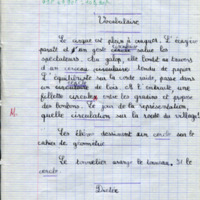 Vocabulaire
Le cirque est plein à craquer. L'écuyère
paraît et d'un geste circulaire salue les
spectateurs. Au galop, elle bondit au travers
d'un cerceau tendu de papier
L'équilibriste sur la corde raide, passe dans
un de bois et il entoure, une
fillette circule entre les gradins et propose
des bonbons. Le jour de la représentation,
quelle circulation sur la route du village!
Les élèves dessinent un cercle sur le
cahier de géométrie
Le tonnelier arrange le tonneau, il le
cercle
Dictée